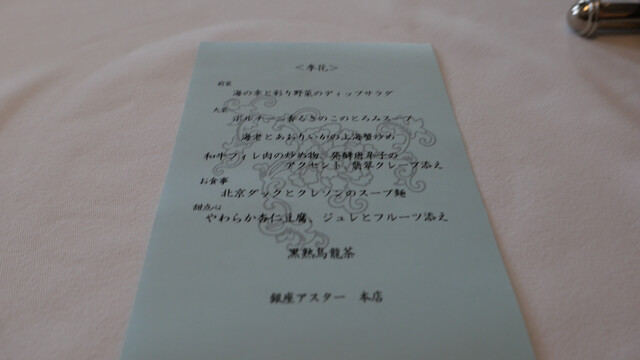 <季花>
前菜
海の幸と彩り野菜のディップサラダ
大菜
ポルチーニ香るきのこのとろみスープ
海老とあおりいかの上海蟹炒め
和牛フィレ肉の炒め物 発酵唐辛子の
アクセント 翡翠クレープ添え
お食事
北京ダックとクレソンのスープ麺
甜点心
やわらか杏仁豆腐、ジュレとフルーツ添え
黒熟烏龍茶
銀座アスター 本店